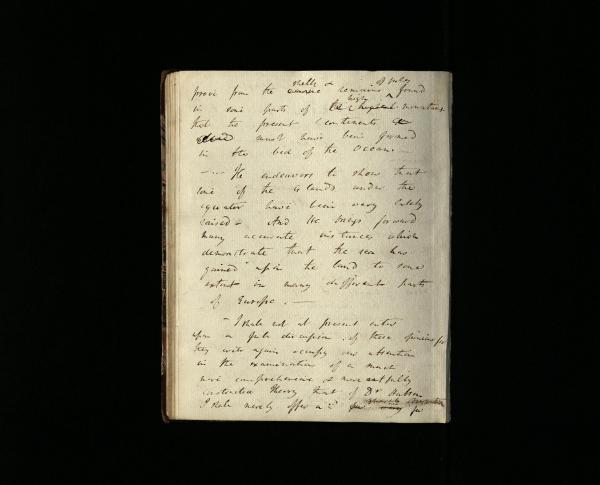 shells & of fishes
prove from the remains found
in some parts of the high mountains
that the present Continents &
must have been formed
in the bed of the Ocean. —
— He endeavors to show that
some of the Islands under the
equator have been very lately
raised — And he brings forward
many accurate instances which
demonstrate that the sea has
gained upon the land to some
extent in many different parts
of Europe. —
— I shall not at present enter
upon a full discussion of these opinions for
they will again occupy our attention
in the examination of a much
more comprehensive & more artfully
constructed Theory that of Dr. Hutton
I shall merely offer a few